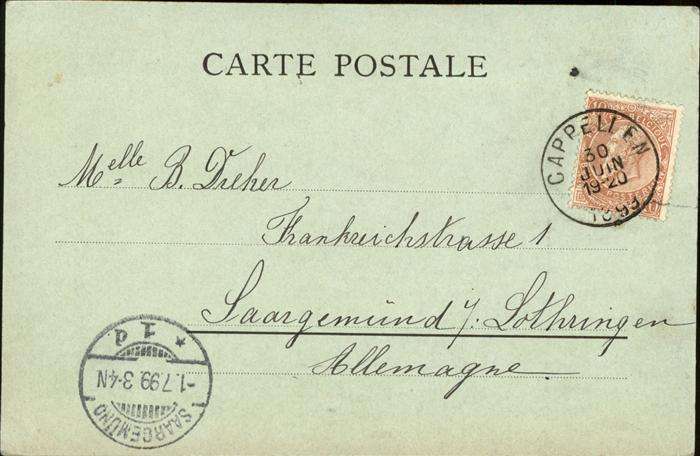 CARTE POSTALE
CAPPELLEN
30
JUIN
19-20
1899
10
Melle B. Dreher
Frankreichstrasse 1
Saargemünd i/. Lothringen
Allemagne.
* 1 d.
-1.7.99 3-4N
SAARGEMÜND